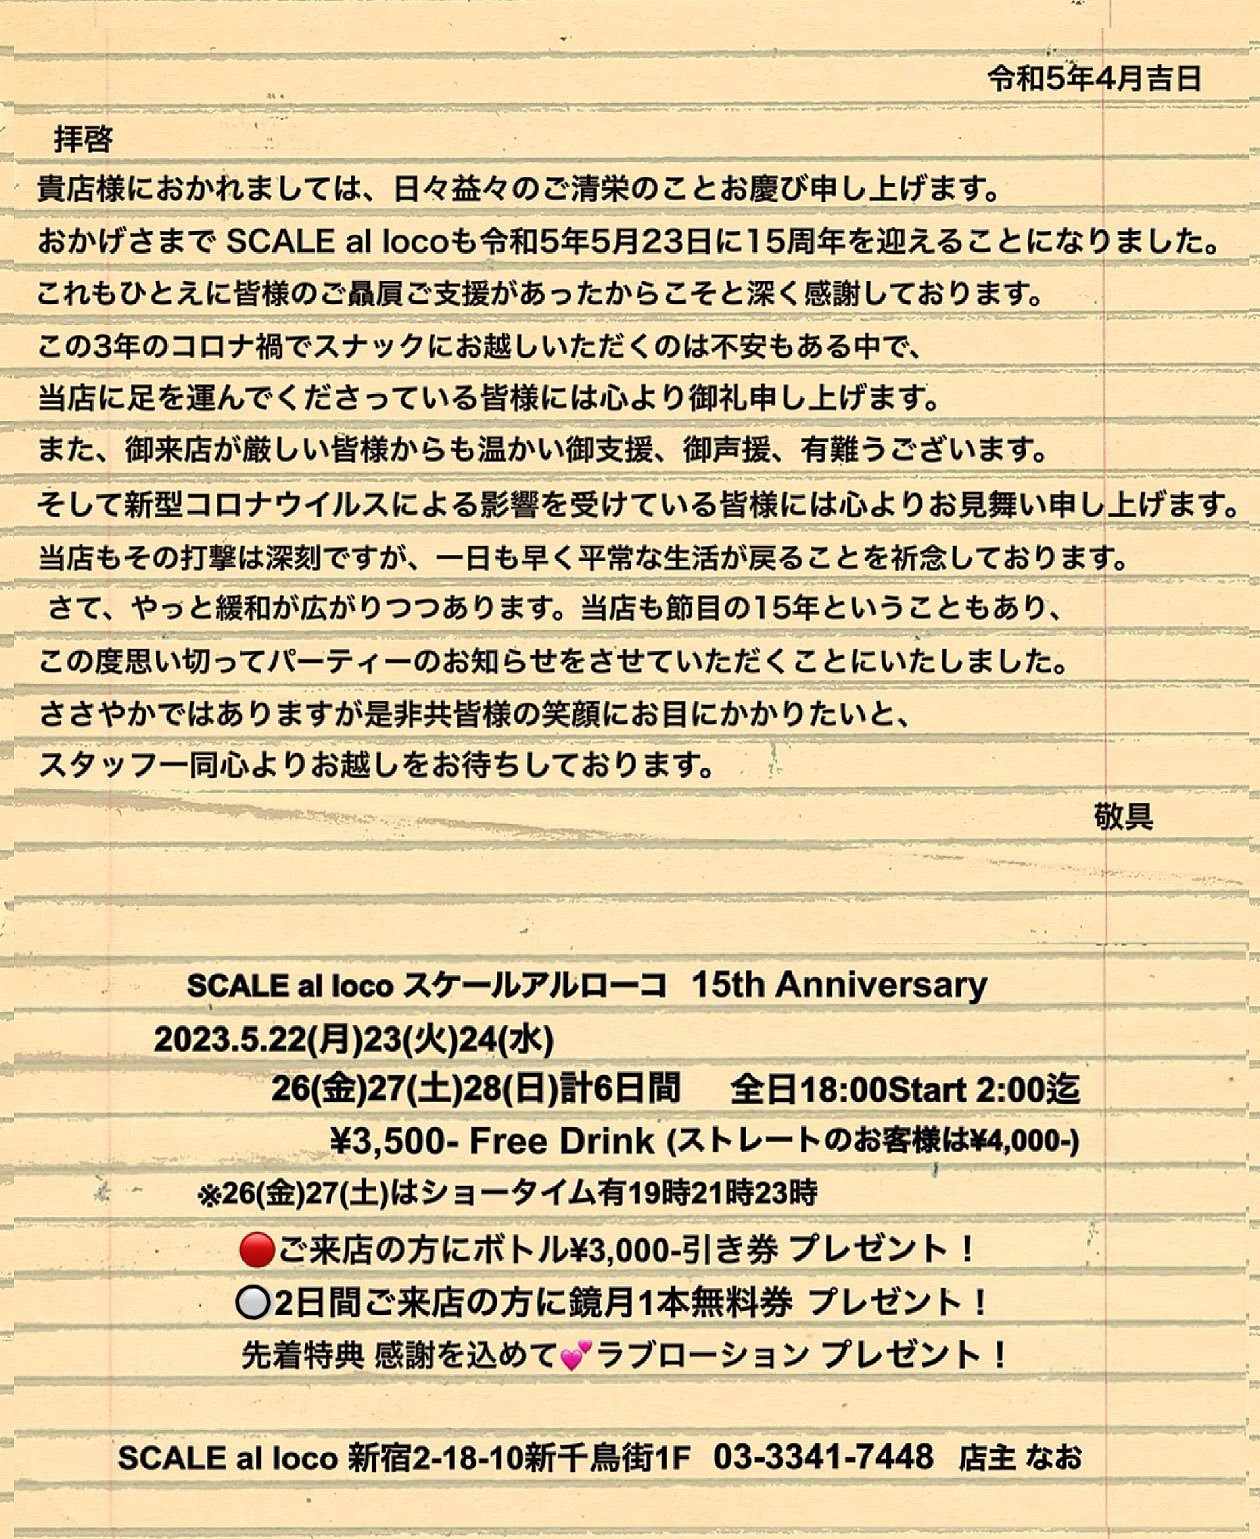 令和5年4月吉日
拝啓
貴店様におかれましては、日々益々のご清栄のことお慶び申し上げます。
おかげさまで SCALE al locoも令和5年5月23日に15周年を迎えることになりました。
これもひとえに皆様のご贔屓ご支援があったからこそと深く感謝しております。
この3年のコロナ禍でスナックにお越しいただくのは不安もある中で、
当店に足を運んでくださっている皆様には心より御礼申し上げます。
また、御来店が厳しい皆様からも温かい御支援、御声援、有難うございます。
そして新型コロナウイルスによる影響を受けている皆様には心よりお見舞い申し上げます。
当店もその打撃は深刻ですが、一日も早く平常な生活が戻ることを祈念しております。
さて、やっと緩和が広がりつつあります。当店も節目の15年ということもあり、
この度思い切ってパーティーのお知らせをさせていただくことにいたしました。
ささやかではありますが是非共皆様の笑顔にお目にかかりたいと、
スタッフ一同心よりお越しをお待ちしております。
敬具
SCALE al loco スケールアルローコ 15th Anniversary
2023.5.22(月)23(火)24(水)
26(金)27(土)28(日)計6日間 全日18:00Start 2:00迄
¥3,500- Free Drink (ストレートのお客様は¥4,000-)
※26(金)27(土)はショータイム有19時21時23時
🔴ご来店の方にボトル¥3,000-引き券 プレゼント！
⚪2日間ご来店の方に鏡月1本無料券 プレゼント！
先着特典 感謝を込めて💕ラブローション プレゼント！
SCALE al loco 新宿2-18-10新千鳥街1F 03-3341-7448 店主 なお